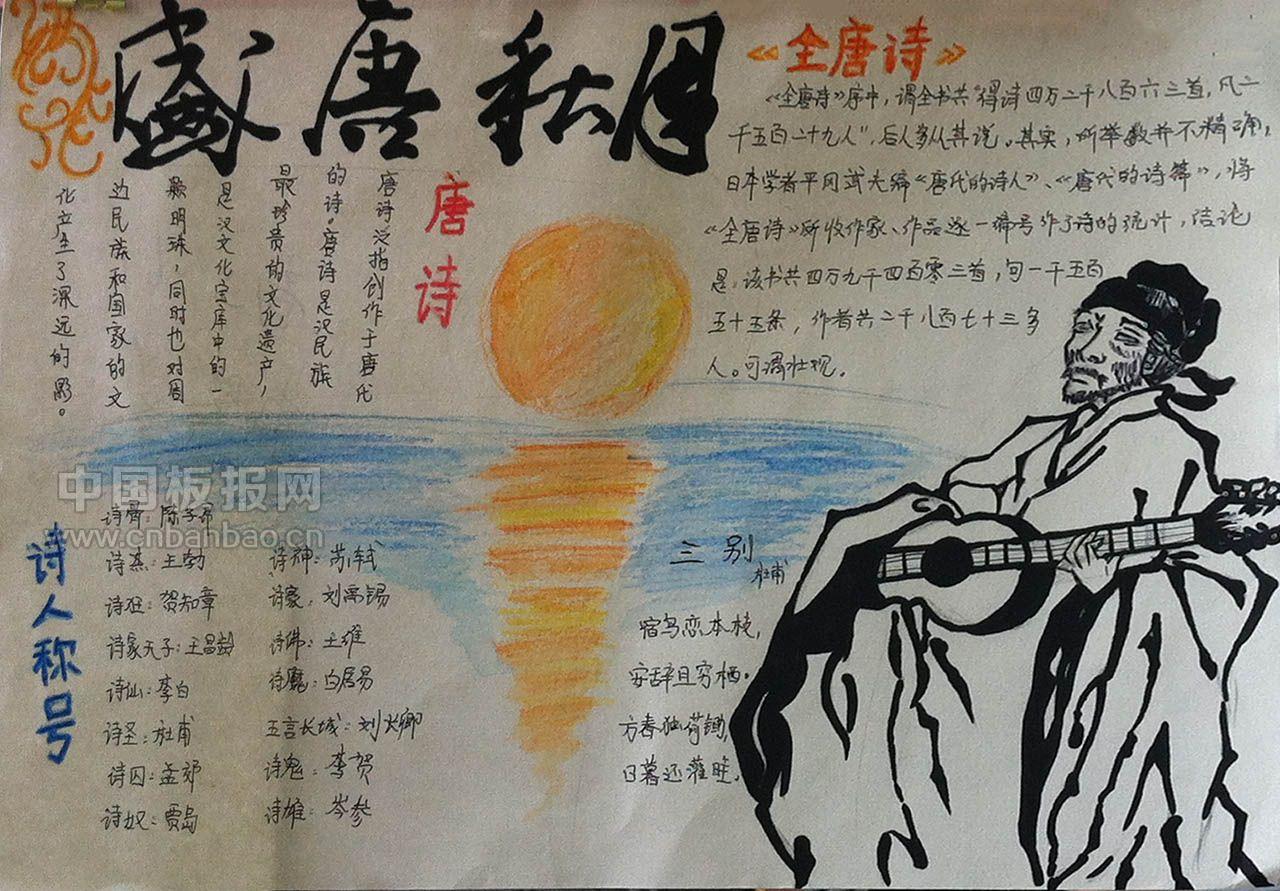 盛唐秋月
《全唐诗》
《全唐诗》序中，谓全书共“得诗四万二千八百六三首，凡二
千五百二十九人”，后人多从其说。其实，所举数并不精确，
日本学者平冈武夫编“唐代的诗人”、《唐代的诗篇》，将
《全唐诗》所收作家、作品逐一编号作了诗的统计，结论
是：该书共四万九千四百零三首，句一千五百
五十五条，作者共二千八百七十三多
人。可谓壮观。
唐诗
唐诗泛指创作于唐代
的诗。唐诗是汉民族
最珍贵的文化遗产，
是汉文化宝库中的一
颗明珠，同时也对周
边民族和国家的文
化产生了深远的影。
中国板报网
www.cnbanbao.cn
诗人称号
诗骨：陈子昂
诗杰：王勃
诗狂：贺知章
诗家天子：王昌龄
诗仙：李白
诗圣：杜甫
诗囚：孟郊
诗奴：贾岛
诗神：苏轼
诗豪：刘禹锡
诗佛：王维
诗魔：白居易
五言长城：刘长卿
诗鬼：李贺
诗雄：岑参
三别
杜甫
宿鸟恋本枝，
安辞且穷栖。
方春独荷锄，
日暮还灌畦。